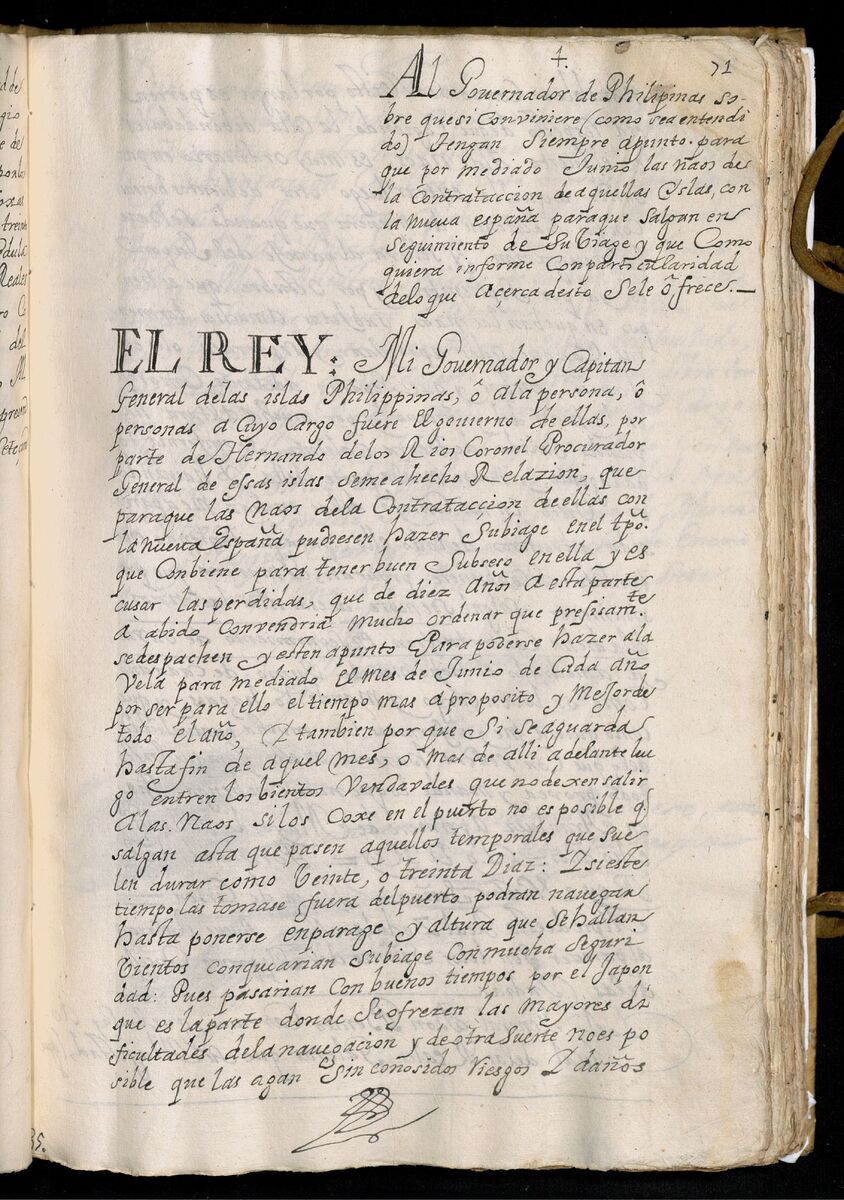 4.
71
Al Governador de Philipinas so-
bre quesi Conviniere (como sea entendi
do) Tengan Siempre apunto para
que por mediado Junio las naos de
la Contrataccion de aquellas Yslas, con
la nueva españa paraque Salgan en
Seguimiento de Su Viage y que Como
quiera informe Conparticularidad
delo que Açerca desto Sele ôfrece.
EL REY: Mi Governador y Capitan
General delas islas Philippinas, ô ala persona, ô
personas a Cuyo Cargo fuere El govierno de ellas, por
parte de Hernando delos Rios Coronel Procurador
General de essas islas semeahecho Relazion, que
paraque las Naos dela Contrataccion de ellas con
la nueva España pudiesen hazer Subiage enel tpô.
que Conbiene para tener buen Subseso en ella y es
cusar las perdidas, que de diez Años A esta parte
à abido Convendria Mucho ordenar que presisamte.
sedespachen y esten apunto Para poderse hazer ala
Vela para mediado El Mes de Junio de Cada año
por ser para ello el tiempo mas aproposito y Mejor de
todo el año, Y tambien por que Si se aguarda
hasta fin de aquel mes, o mas de alli adelante lue
go entren los bientos Vendavales que nodexen salir
Alas Naos Silos Coxe en el puerto no es posible q
salgan asta que pasen aquellos temporales que sue
len durar como Veinte, o treinta Diaz: Y si este
tiempo las tomase fuera del puerto podran navegar
hasta ponerse enparage y altura que Se hallan
Vientos conque arian Subiage Con mucha Seguri
dad: Pues pasarian Con buenos tiempos por el Japon
que es la parte donde Se ofrezen las Mayores di
ficultades dela navegacion y de otra Suerte no es po
sible que las agan Sin conosidos riesgos Y daños